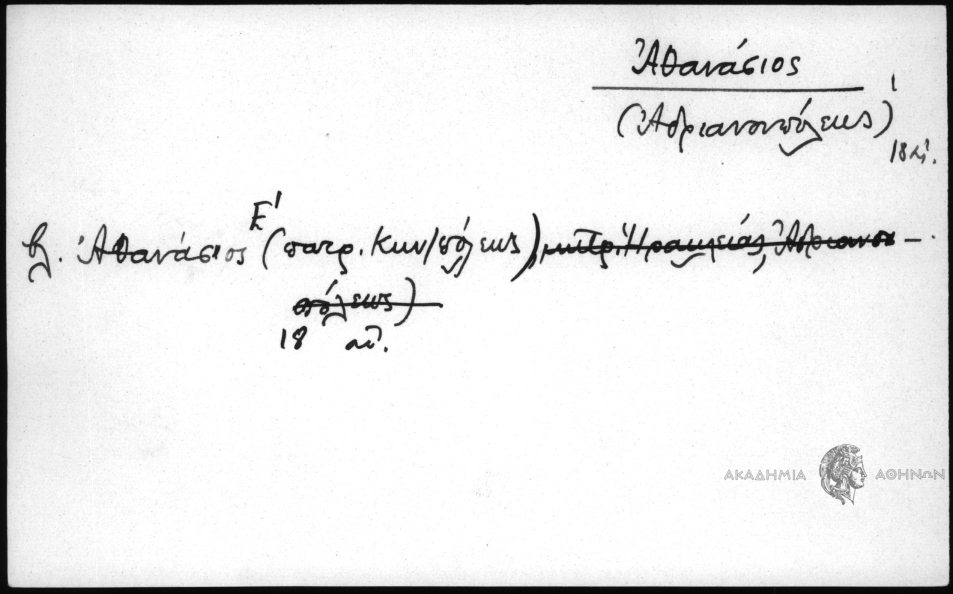 Ἀθανάσιος
(Ἀδριανουπόλεως)
18 αἰ.
βλ. Ἀθανάσιος Ε' (πατρ. Κων/πόλεως), μητρ. Ἡρακλείας, Ἀδριανου-
πόλεως)
18 αἰ.
ΑΚΑΔΗΜΙΑ ΑΘΗΝΩΝ